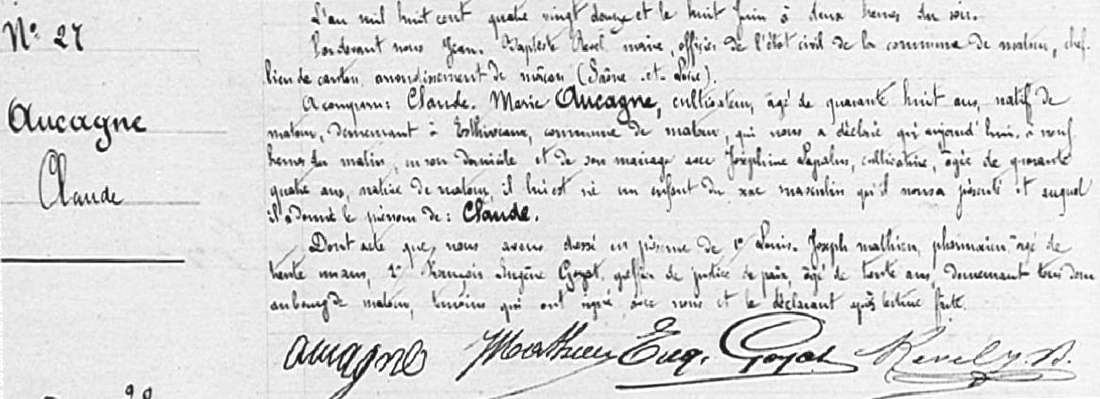 N° 27
Aucagne
Claude
L'an mil huit cent quatre vingt douze et le huit Juin à deux heures du soir.
Pardevant nous Jean-Baptiste Revel, maire, officier de l'état civil de la commune de matour, chef-
lieu de canton, arrondissement de mâcon (Saône-et-Loire).
A comparu: Claude-Marie Aucagne, cultivateur, âgé de quarante huit ans, natif de
matour, demeurant à commune de matour, qui nous a déclaré qu'aujourd'hui, à neuf
heures du matin, en son domicile et de son mariage avec Joséphine Lapalus, cultivatrice, âgée de quarante
quatre ans, native de matour, il lui est né un enfant du sexe masculin qu'il nous a présenté et auquel
il a donné le prénom de: Claude.
Dont acte que nous avons dressé en présence de 1° Louis-Joseph mathieu, pharmacien, âgé de
trente un ans, 2° François Eugène Goyat, greffier de justice de paix, âgé de trente ans, demeurant tous deux
au bourg de matour, témoins qui ont signé avec nous et le déclarant après lecture faite.
Aucagne Mathieu Eug. Goyat Revel J. B.